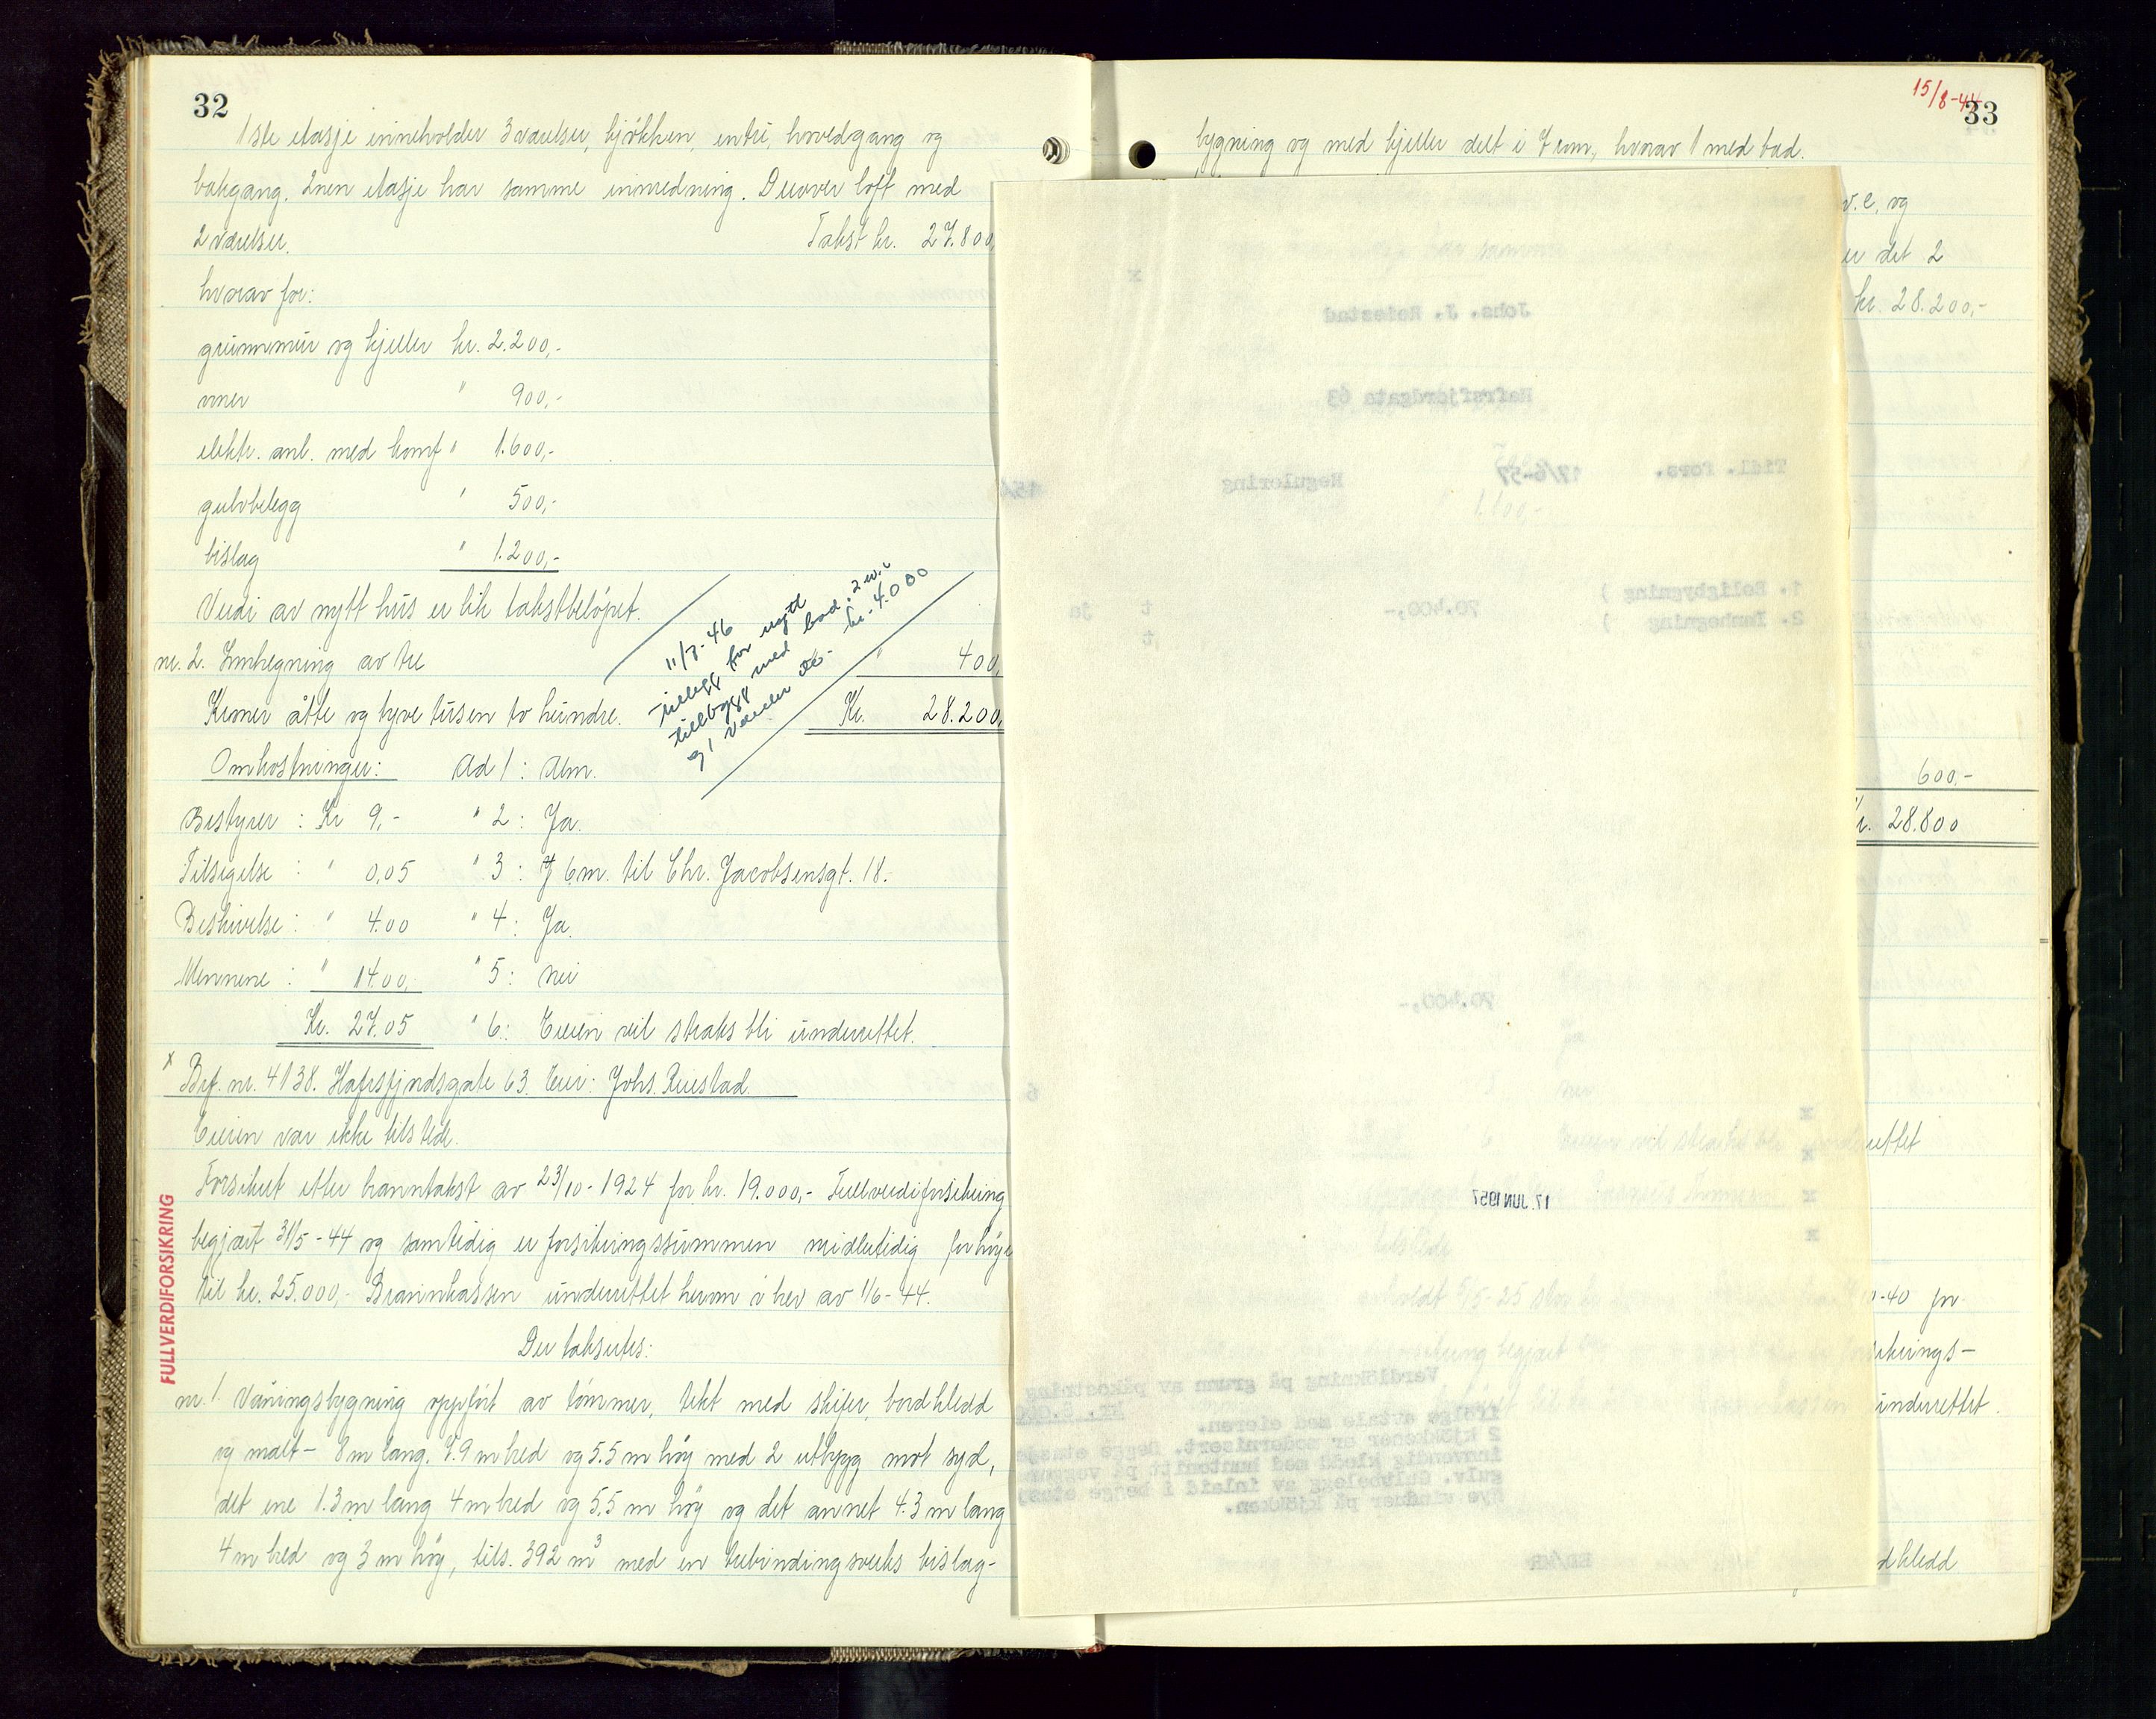 32
1ste etasje inneholder 3 værelser, kjøkken, entré, hovedgang og
bakgang. 2nen etasje har samme innredning. Derover loft med
2 værelser. Takst kr. 27.800,
hvorav for:
grunnmur og kjeller kr. 2.200,-
ovner " 900,-
elektr. anl. med komf " 1.600,-
gulvbelegg " 500,-
bislag " 1.200,-
Verdi av nytt hus er lik takstbeløpet.
11/7-46
tillegg for nytt
tilbygg med bad, 2 w.c
og 1 værelse
kr. 4.000
nr. 2. Innhegning av tre " 400,
Kroner åtte og tyve tusen to hundre. Kr. 28.200,
Omkostninger: Ad 1: Alm.
Bestyrer: Kr 9,- " 2: Ja.
Tilsigelse: " 0,05 " 3: 7.6m. til Chr. Jacobsensgt. 18.
Beskrivelse: " 4.00 " 4: Ja.
Mennene: " 14.00, " 5: nei
Kr. 27.05 " 6: Eieren vil straks bli underrettet.
x Brf. nr. 4138. Hafrsfjordsgate 63. Eier: Johs. Reiestad.
Eieren var ikke tilstede.
Forsikret etter branntakst av 23/10-1924 for kr. 19.000,- Fullverdiforsikring
begjært 31/5-44 og samtidig er forsikringssummen midlertidig forhøye
til kr. 25.000,- Brannkassen underrettet herom i brev av 1/6-44.
Der takseres:
FULLVERDIFORSIKRING
nr. 1. Våningsbygning oppført av tømmer, tekt med skifer, bordkledd
og malt - 8 m lang, 7.9 m bred og 5.5 m høy med 2 utbygg mot syd,
det ene 1.3 m lang 4 m bred og 5.5 m høy og det annet 4.3 m lang
4 m bred og 3 m høy, tils. 392 m³ med en trebindingsverks bislag-
15/8-44
33
bygning og med kjeller delt i 7 rom, hvorav 1 med bad.
v.c, og
er det 2
kr. 28.200,-
600,-
Kr. 28.800
rettet
-40 for
sikrings-
underrettet.
dkledd
Johs. J. Reiestad
Hafrsfjordgata 63
Tidl. fors. 17/6-57 Regulering
1. Boligbygning )
70.400,- t ja
2. Innhegning ) t
70.400,-
6
x
x
x
x
17. JUN 1957
Verdiökning på grunn av påkostning
ifölge avtale med eieren.
2 kjökkener er modernisert. Begge etasje
innvendig kledd med huntonitt på vegger
gulv. Gulvbelegg av inlaid i begge etasj
Nye vinduer på kjökken.